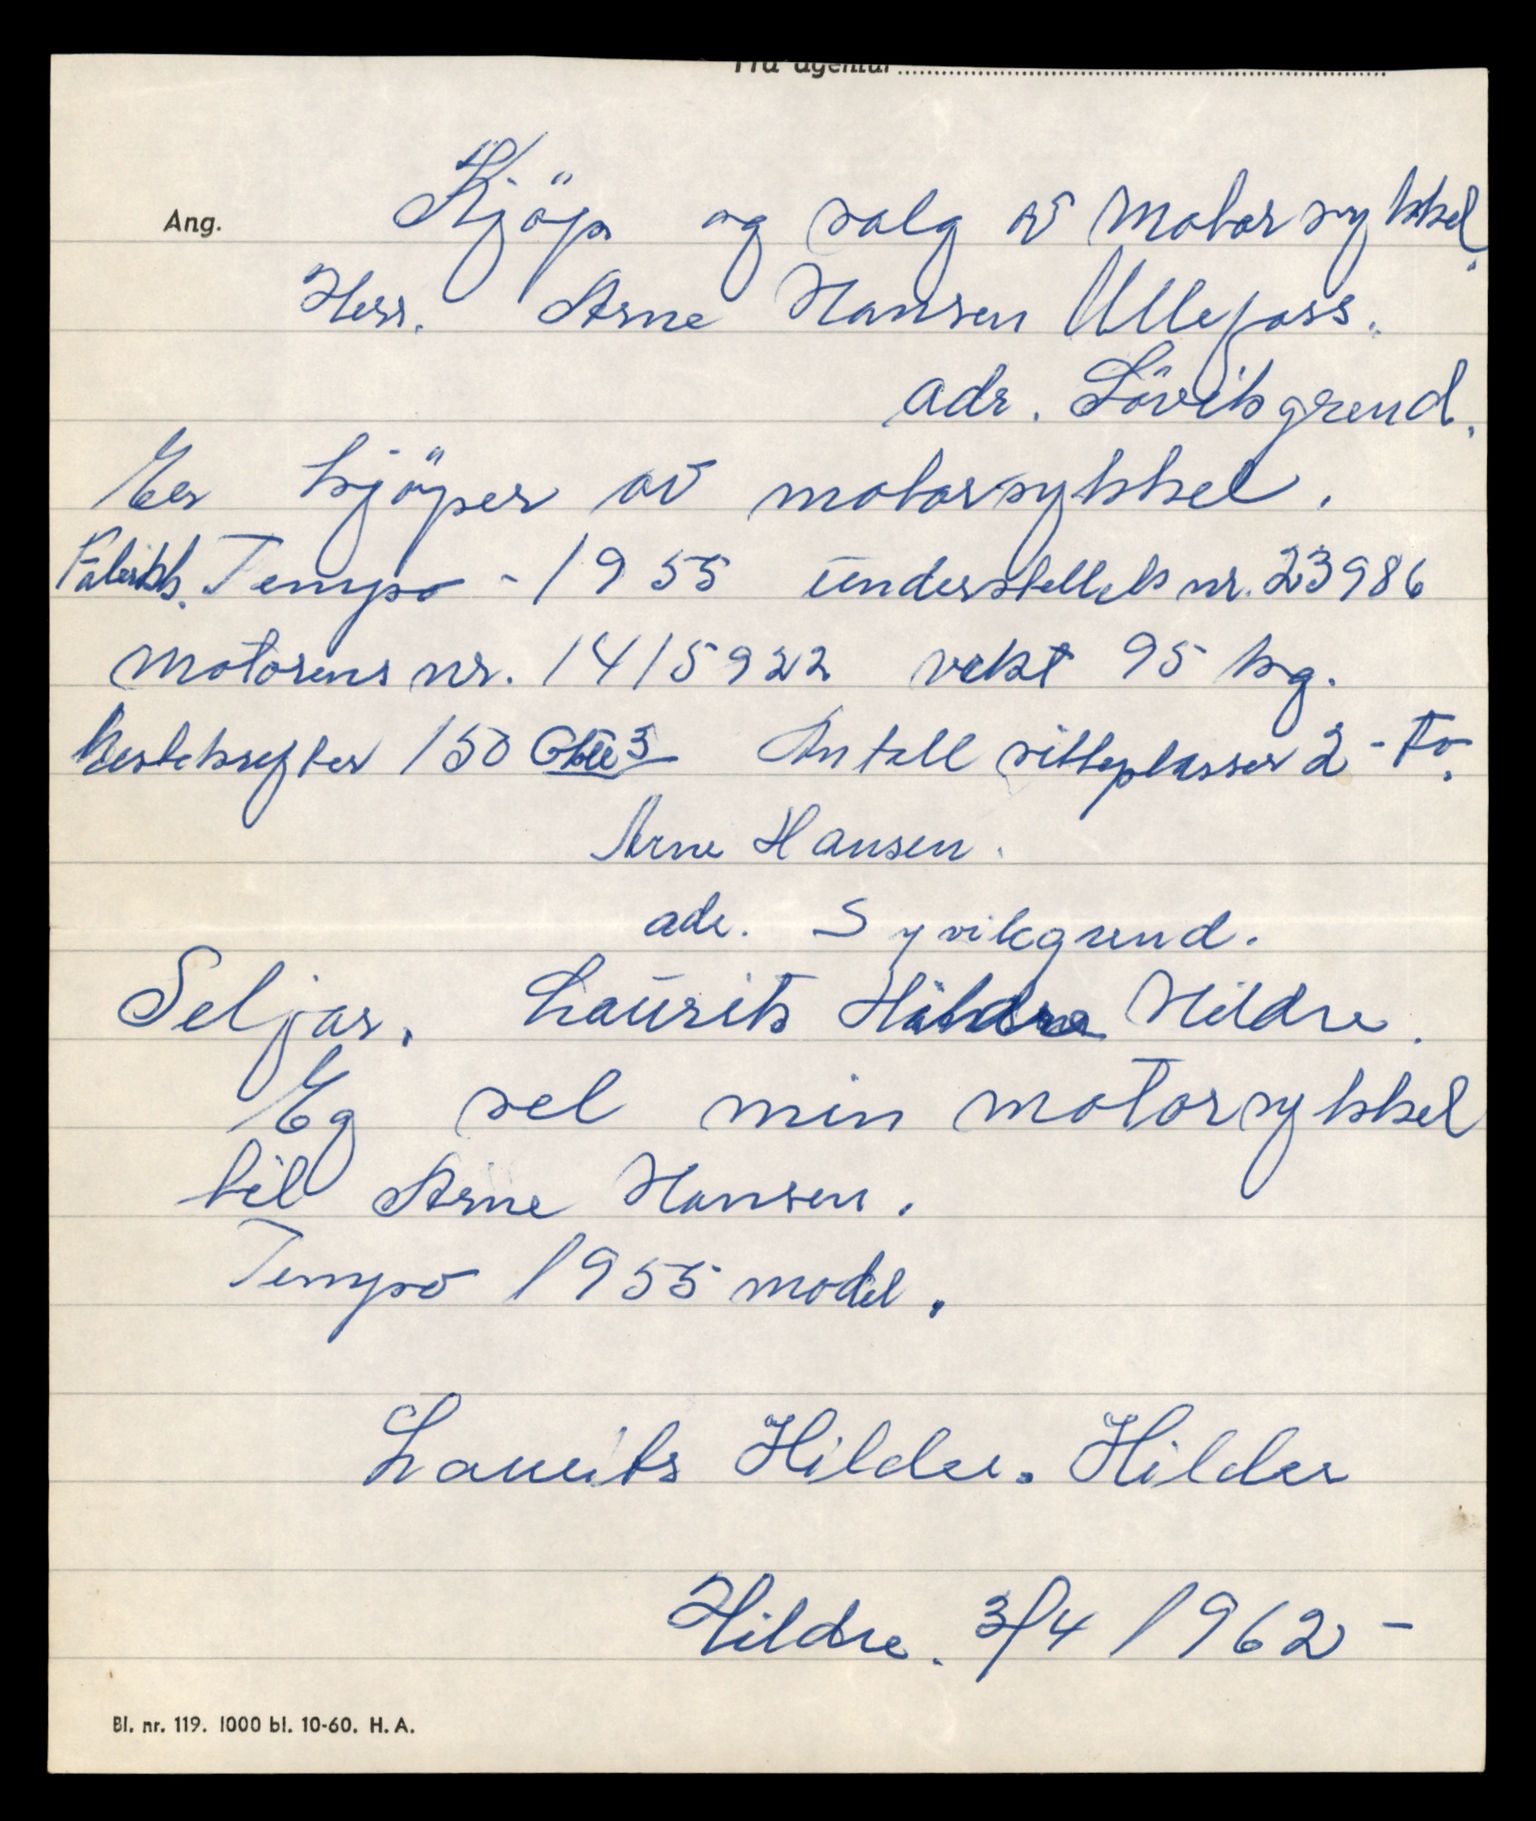 Fra agentur
Ang. Kjöp og salg av Motorsykkel.
Herr. Arne Hansen Ullefoss.
adr. Lövikgrend.
Er kjöper av motorsykkel.
Fabrikk. Tempo - 1955 understellets nr. 23986
motorens nr. 1415922 vekt 95 kg.
hestekrefter 150 Antall sitteplasser 2 - to.
Arne Hansen.
adr. Syvikgrend.
Seljar. Laurits Hildre.
Eg sel min motorsykkel
til Arne Hansen.
Tempo 1955 model.
Laurits Hildre. Hildre
Hildre. 3/4 1962 -
Bl. nr. 119. 1000 bl. 10-60. H. A.